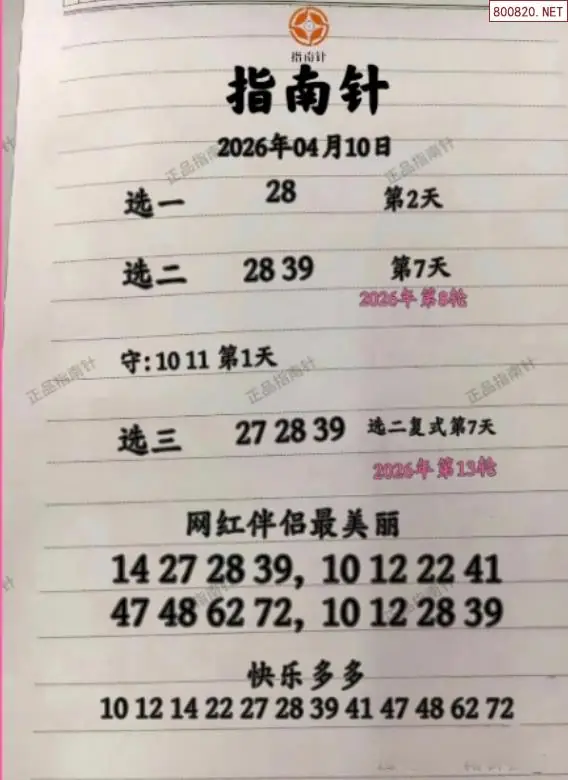 800820.NET
指南针
指南针
2026年04月10日
正品指南针 正品指南针
选一 28 第2天
选二 28 39 第7天
2026年 第8轮
守:10 11 第1天
正品指南针 正品指南针 正品指南针
选三 27 28 39 选二复式第7天
2026年 第13轮
网红伴侣最美丽
14 27 28 39, 10 12 22 41
47 48 62 72, 10 12 28 39
正品指南针 正品指南针
快乐多多
10 12 14 22 27 28 39 41 47 48 62 72